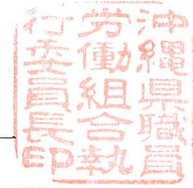 沖縄県職員
労働組合執
行委員長印